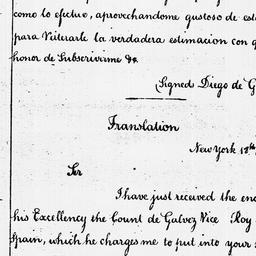 como lo efectuo, aprovechandome gustoso de
para Reiterarle la verdadera estimacion con
honor de Subscrivirme &a.
Signed Diego de G
Translation
New York 18th
Sir
I have just received the
his Excellency the Count de Galvez Vice Roy
Spain, which he charges me to put into your